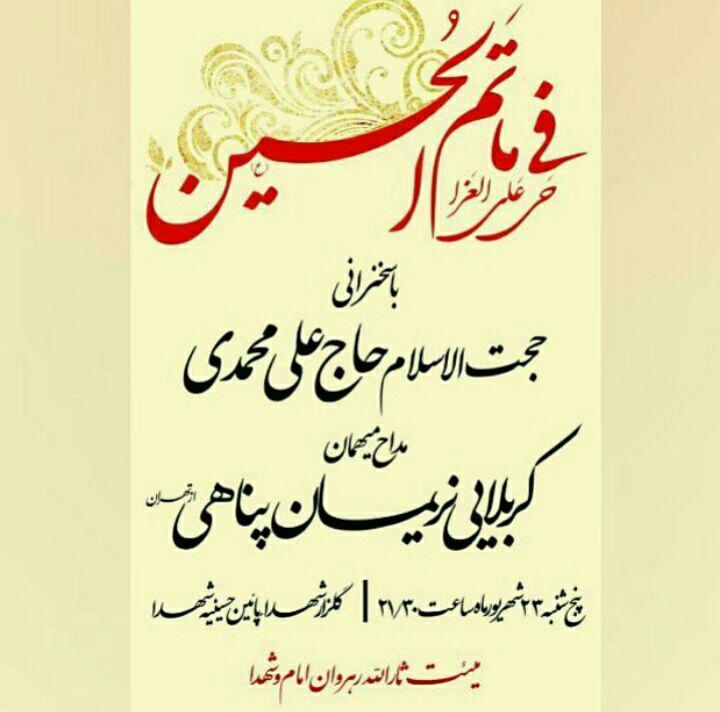 فی ماتم الحسین (ع)
حی علی العزا
با سخنرانی
حجت الاسلام حاج علی محمدی
مداح میهمان
کربلایی نریمان پناهی از تهران
پنج شنبه ۲۳ شهریور ماه ساعت ۲۱/۳۰ | گلزار شهدا پائین حسینیه شهدا
هیئت ثارالله رهروان امام و شهدا